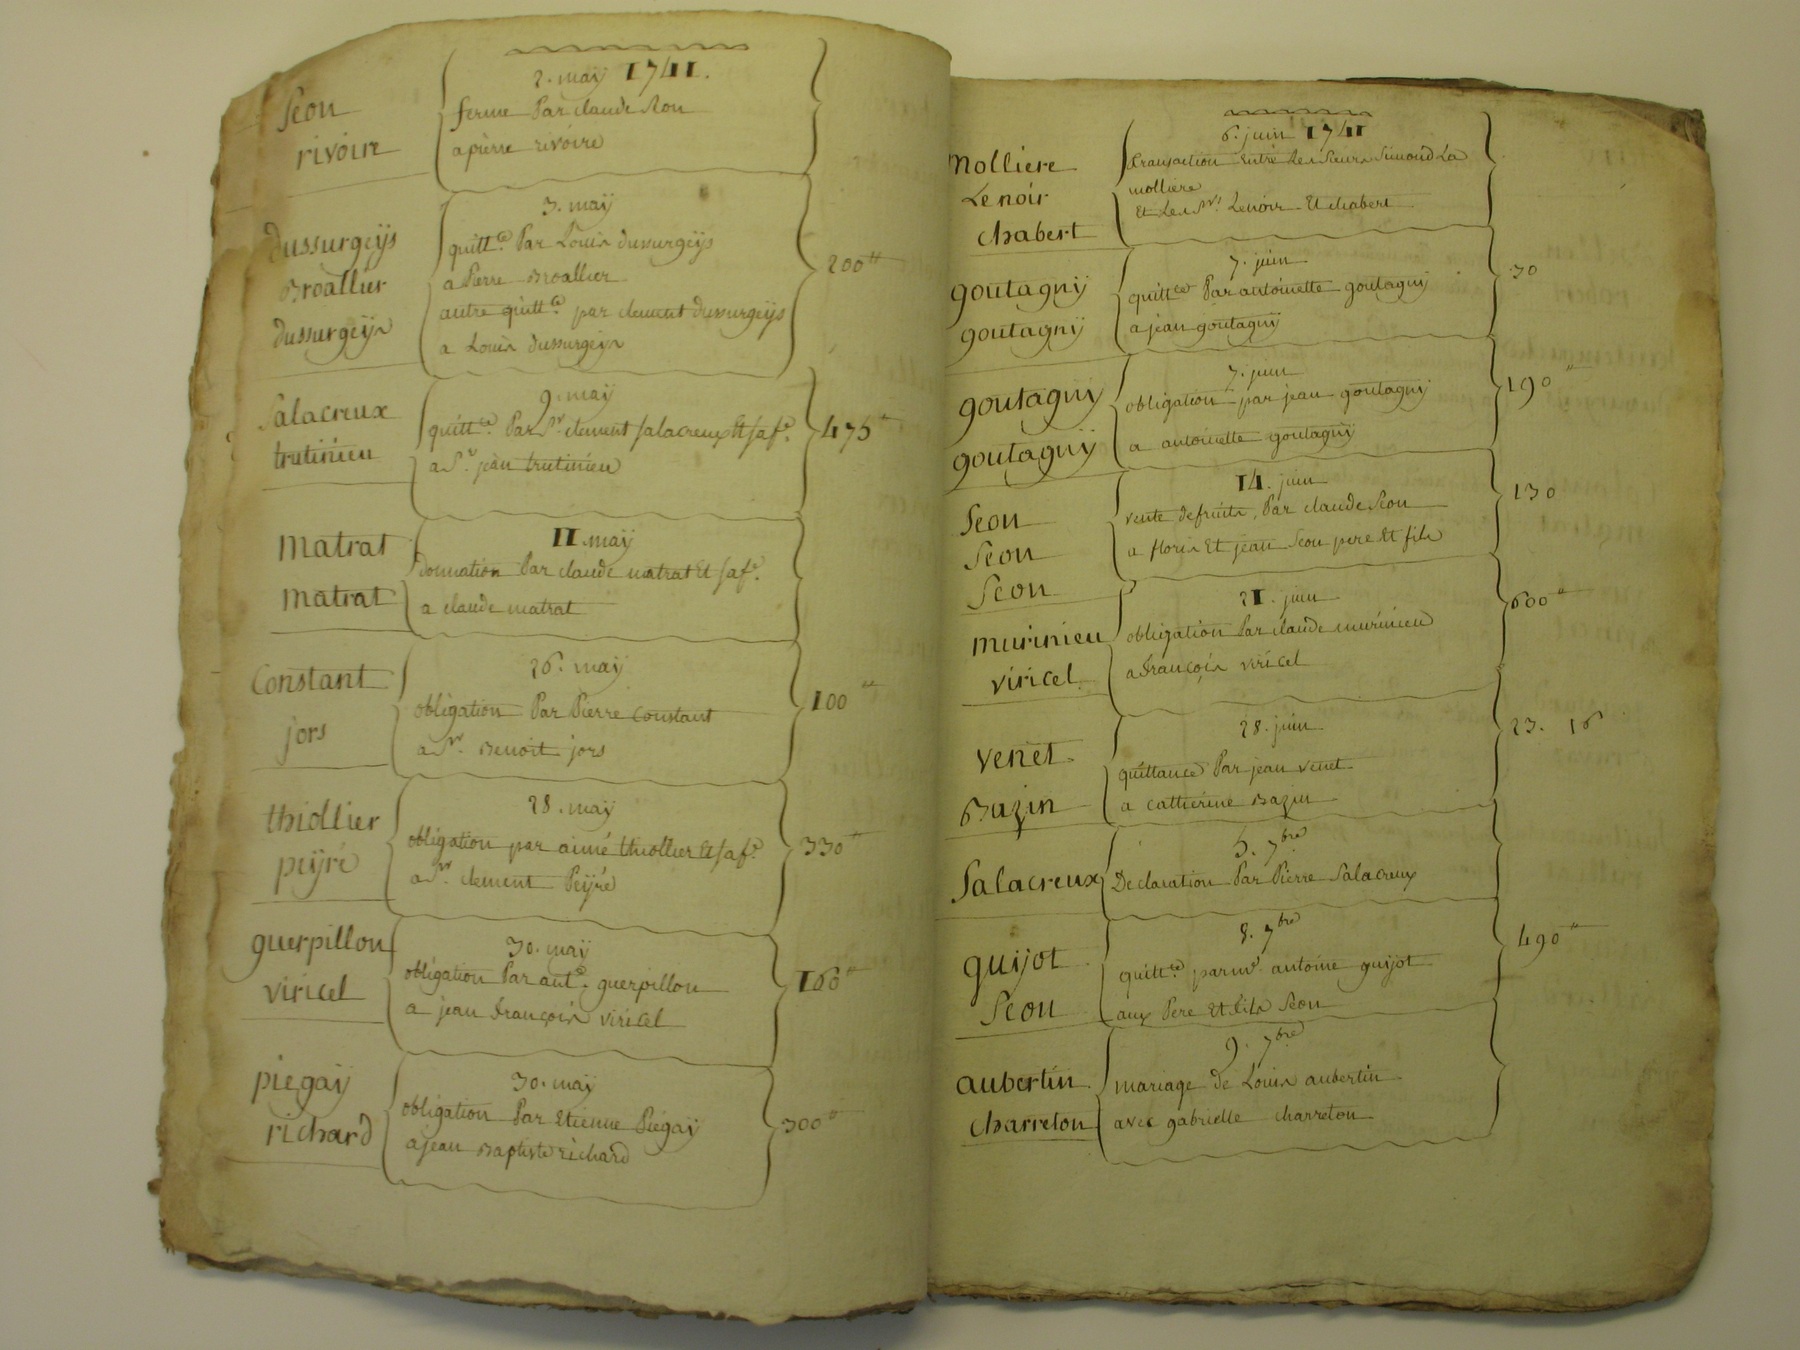 2. maÿ 1741.
Seon
ferme Par claude Seon
rivoire
a pierre rivoire
3. maÿ
dussurgeÿs
quitt.ce Par Louis dussurgeÿs
Broallier
a Pierre Broallier
200 ₶
autre quitt.ce par clement dussurgeÿs
dussurgeÿs
a Louis dussurgeÿs
9. maÿ
Salacreux
quitt.ce Par Sr. clement salacreux Et sa f.e
475 ₶
trutinieu
a Sr. jean trutinieu
11. maÿ
matrat
donnation Par claude matrat Et sa f.e
matrat
a claude matrat
26. maÿ
Constant
obligation Par Pierre constant
100 ₶
jors
a Sr. Benoit jors
28. maÿ
thiollier
obligation par aimé thiollier Et sa f.e
330 ₶
peÿré
a Sr. clement Peÿré
30. maÿ
guerpillon
obligation Par ant.e guerpillon
160 ₶
viricel
a jean françois viricel
30. maÿ
piegaÿ
obligation Par Etienne Piegaÿ
300 ₶
richard
a jean Baptiste richard
6. juin 1741
molliere
transaction Entre Les Sieurs Simond La
molliere
Lenoir
Et Les Srs. Lenoir Et chabert
chabert
7. juin
goutagnÿ
quitt.ce Par antoinette goutagnÿ
30
goutagnÿ
a jean goutagnÿ
7. juin
goutagnÿ
obligation par jean goutagnÿ
190 ₶
goutagnÿ
a antoinette goutagnÿ
14. juin
Seon
vente de fruits, Par claude Seon
130
Seon
a floris Et jean Seon pere Et fils
Seon
21. juin
murinieu
obligation Par claude murinieu
600 ₶
viricel
a françois viricel
28. juin
venet
quittance Par jean venet
23. 16
Bazin
a catherine Bazin
5. 7bre
Salacreux
Declaration Par Pierre Salacreux
8. 7bre
guijot
quitt.ce par mr. antoine guijot
490 ₶
Seon
aux Pere Et fils Seon
9. 7bre
aubertin
mariage de Louis aubertin
charreton
avec gabrielle charreton